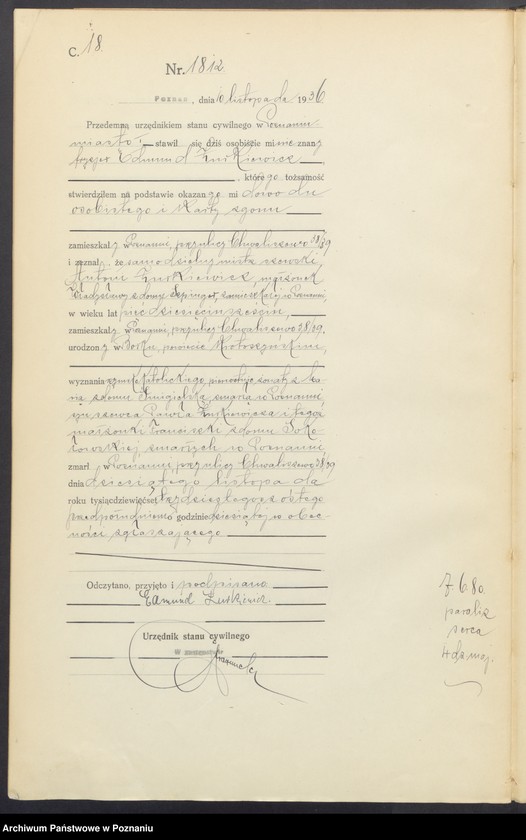 C. 18.
Nr. 1812
Poznań, dnia 10 listopada 1936
Przedemną urzędnikiem stanu cywilnego w Poznaniu-
miasto stawił się dziś osobiście mi nie znany
Edmund Żurkiewicz
, którego tożsamość
stwierdziłem na podstawie okazanego mi dowodu
osobistego i karty zgonu
zamieszkały w Poznaniu, przy ulicy Chwaliszewo 28/29
i zeznał, że samodzielny mistrz szewski,
Antoni Żurkiewicz, małżonek
Władysławy z domu zamieszkałej w Poznaniu,
w wieku lat pięćdziesięciu sześciu,
zamieszkały w Poznaniu, przy ulicy Chwaliszewo 28/29,
urodzony w powiecie Krotoszyńskim,
wyznania rzymskokatolickiego,
z domu zmarłą w Poznaniu,
syn szewca Żurkiewicza i tegoż
małżonki Franciszki z domu
zmarłych w Poznaniu,
zmarł w Poznaniu, przy ulicy Chwaliszewo 28/29
dnia dziesiątego listopada
roku tysiącdziewięćset trzydziestego szóstego
przedpołudniem o godzinie dziesiątej w obec-
ności zgłaszającego
Odczytano, przyjęto i podpisano
Edmund Żurkiewicz.
Urzędnik stanu cywilnego
W zastępstwie
7. 6 80.
paraliż
serca
Archiwum Państwowe w Poznaniu